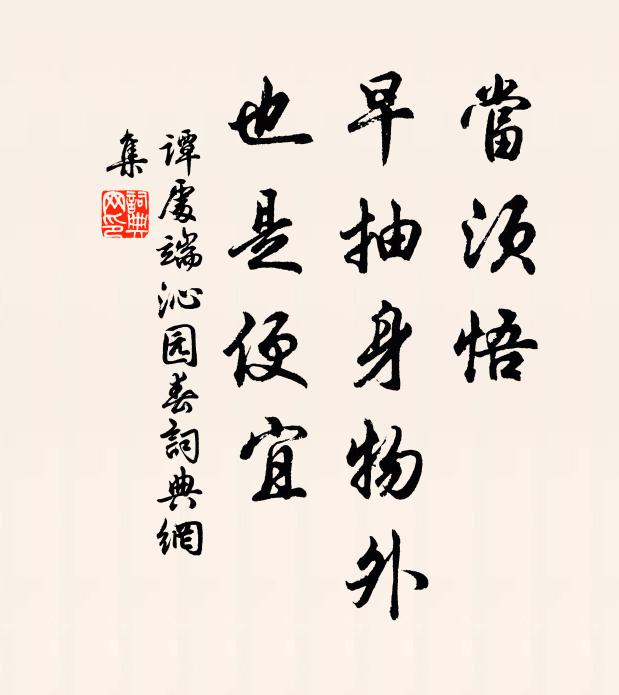 當須悟
早抽身物外
也是便宜
譚處端沁园春詞典網
集
詞典網印